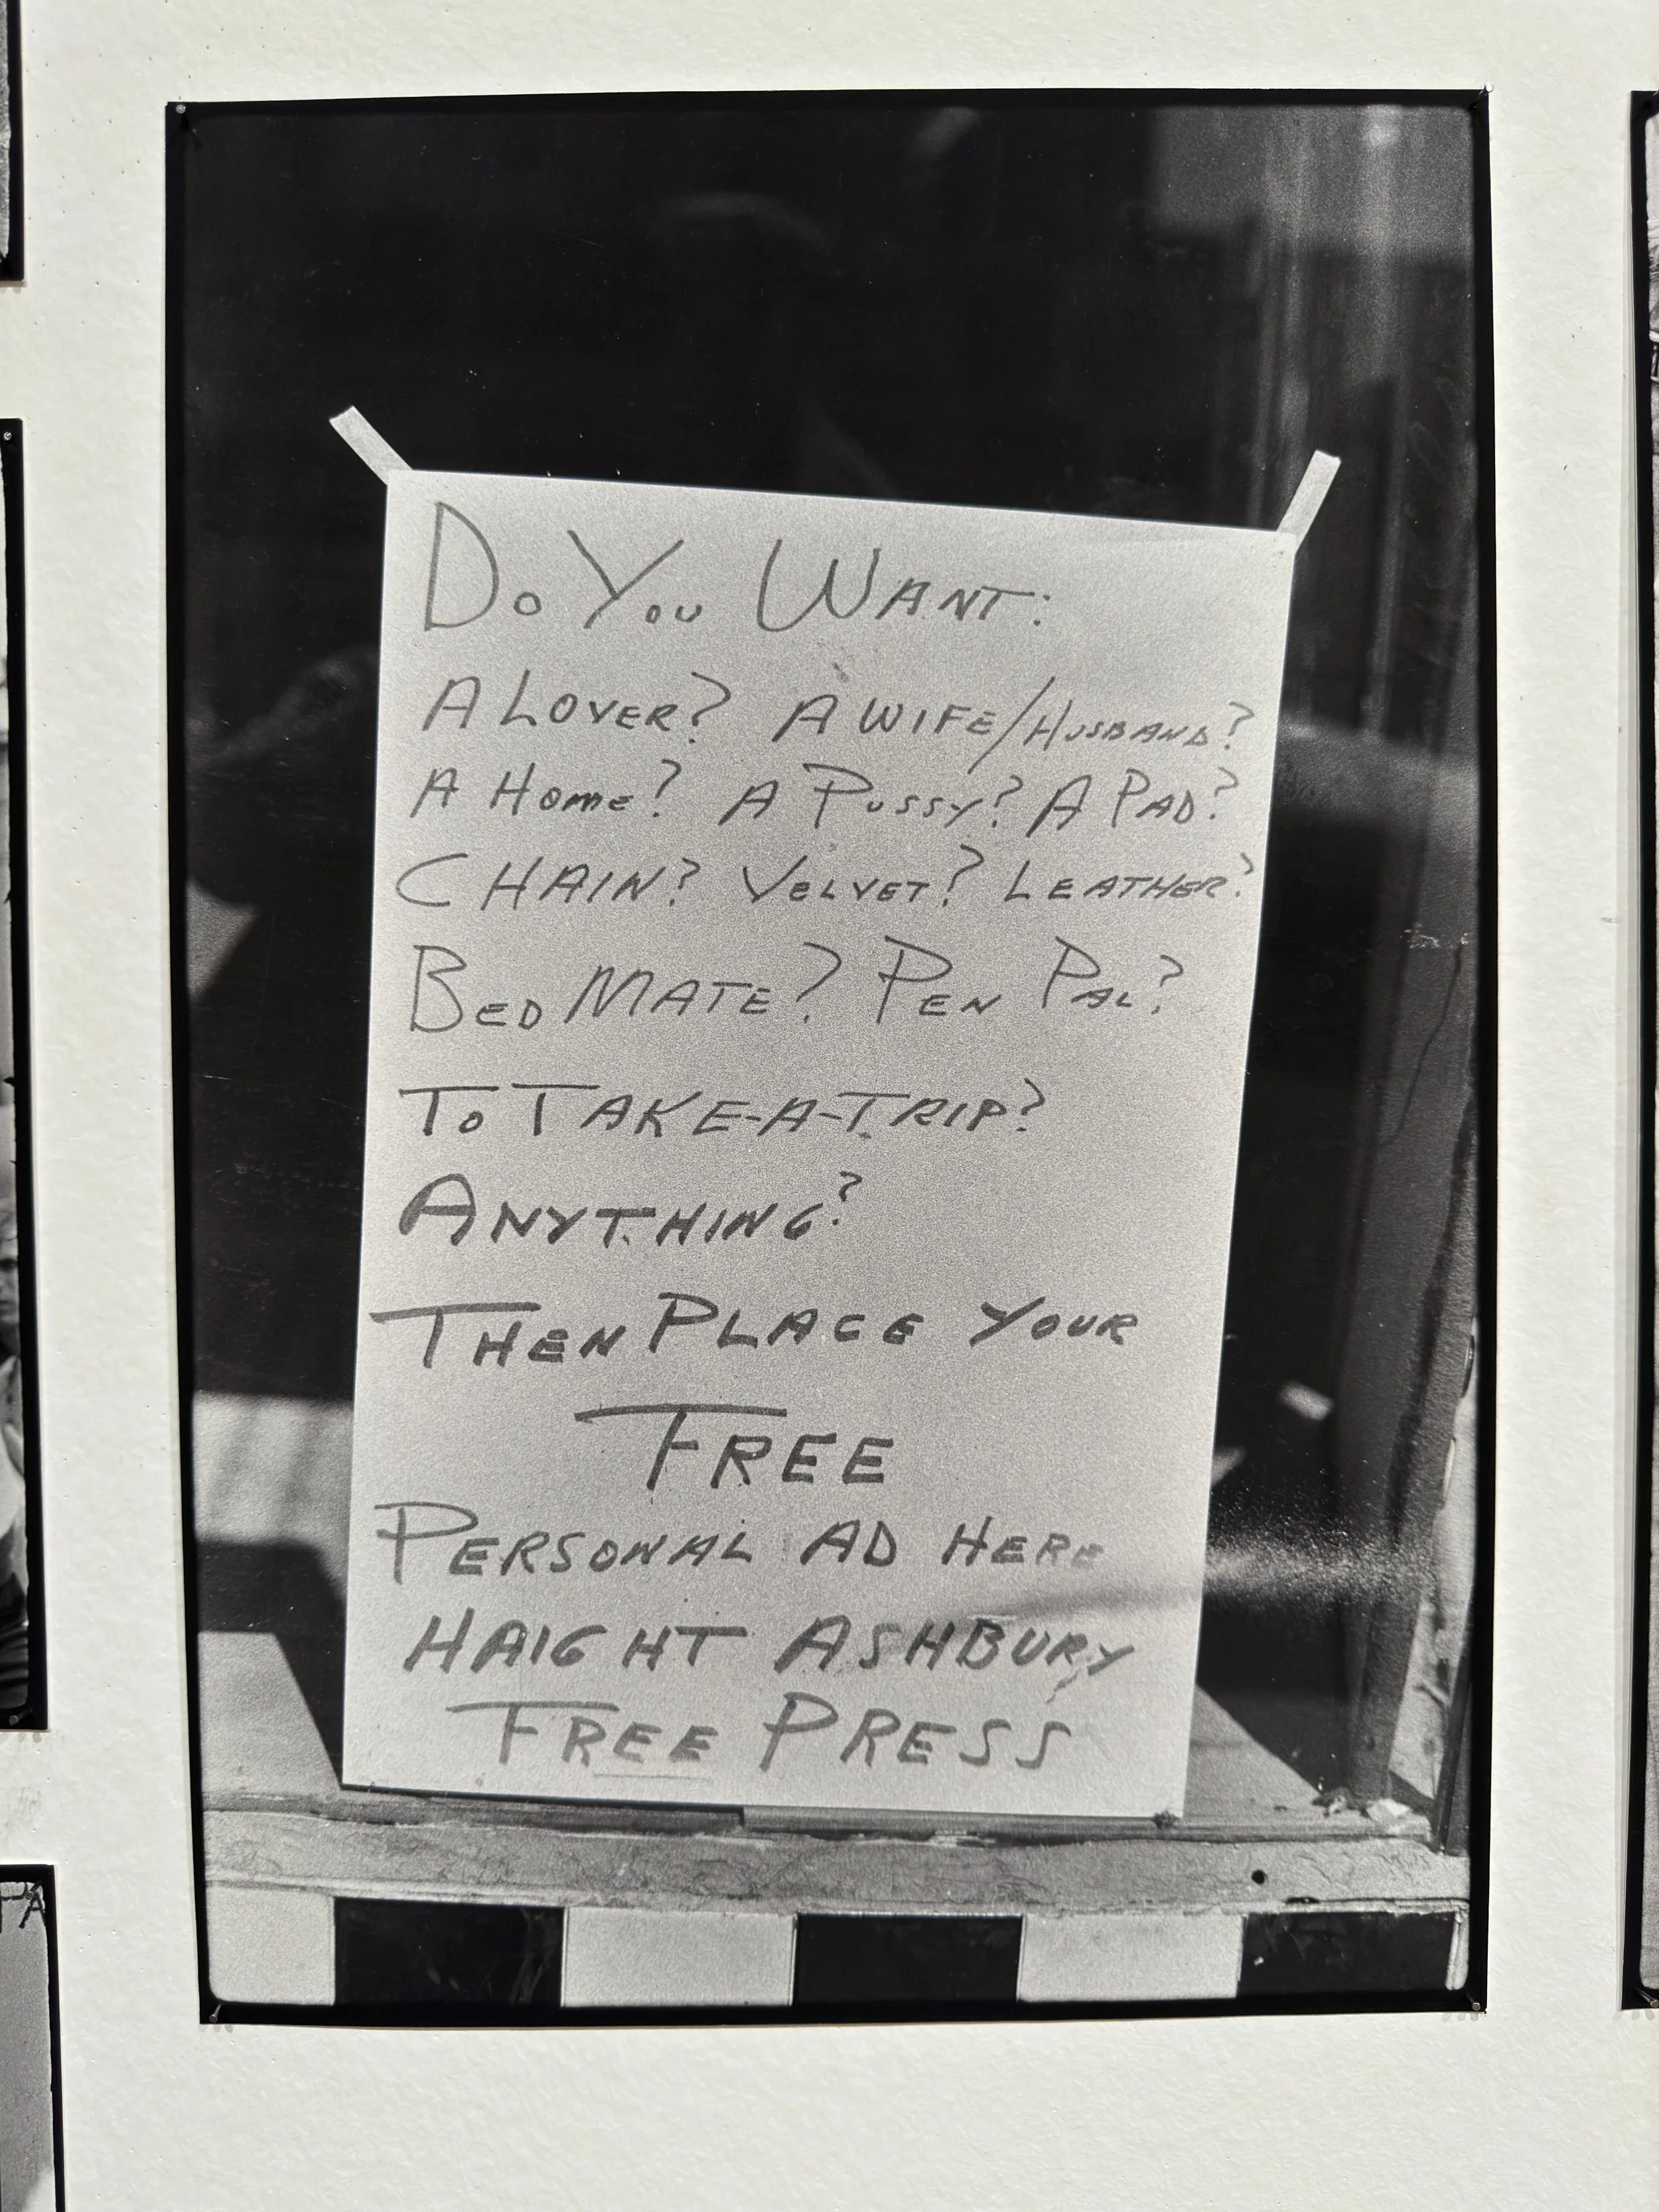 Do You WANT:
A LOVER? A WIFE/HUSBAND?
A Home? A PUSSY? A PAD?
CHAIN? VELVET? LEATHER?
BED MATE? PEN PAL?
To TAKE-A-TRIP?
ANYTHING?
THEN PLACE YOUR
FREE
PERSONAL AD HERE
HAIGHT ASHBURY
FREE PRESS